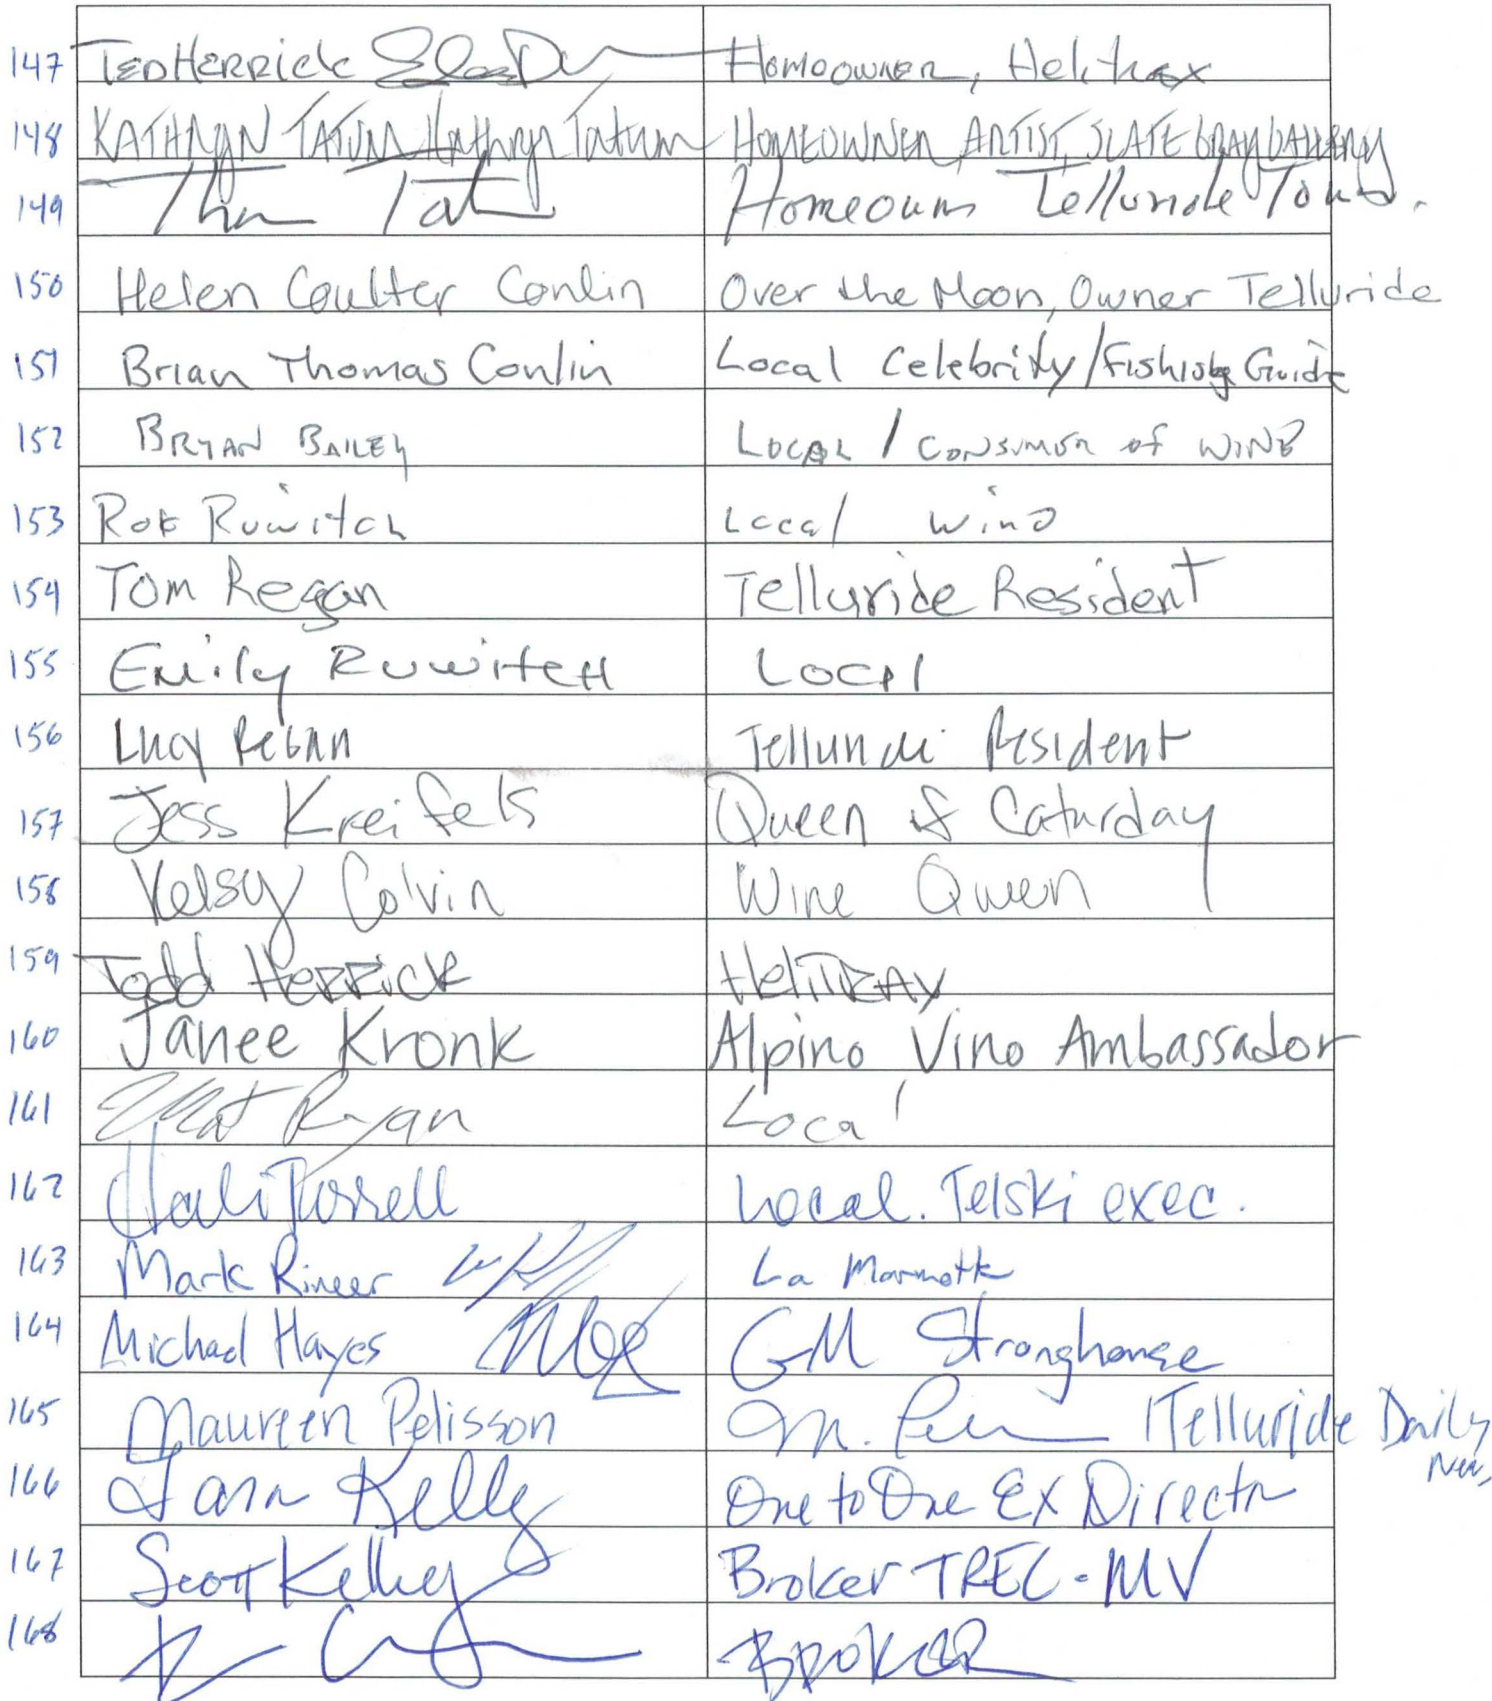 147 TED HERRICK Homeowner, Helitrax
148 KATHRYN TATUM Kathryn Tatum HOMEOWNER ARTIST, SLATE GRAY GALLERY
149 Telluride
150 Helen Coulter Conlin Over the Moon, Owner Telluride
151 Brian Thomas Conlin Local Celebrity/Fishing Guide
152 BRYAN BAILEY LOCAL / CONSUMER of WINE
153 Rob Ruwitch Local
154 Tom Regan Telluride Resident
155 Emily RuwitcH Local
156 Lucy Regan Resident
157 Jess Kreifels Queen of Caturday
158 Kelsy Colvin Wine Queen
159 Todd HERRICK
160 Janee Kronk Alpino Vino Ambassador
161 Mat Ryan Local
162 Local. Telski exec.
163 Mark Rineer La Marmotte
164 Michael Hayes GM Stronghouse
165 Maureen Pelisson M. | Telluride Daily
News
166 Tara Kelly One to One Ex Director
167 Scott Kelley Broker TREC - MV
168 BROKER